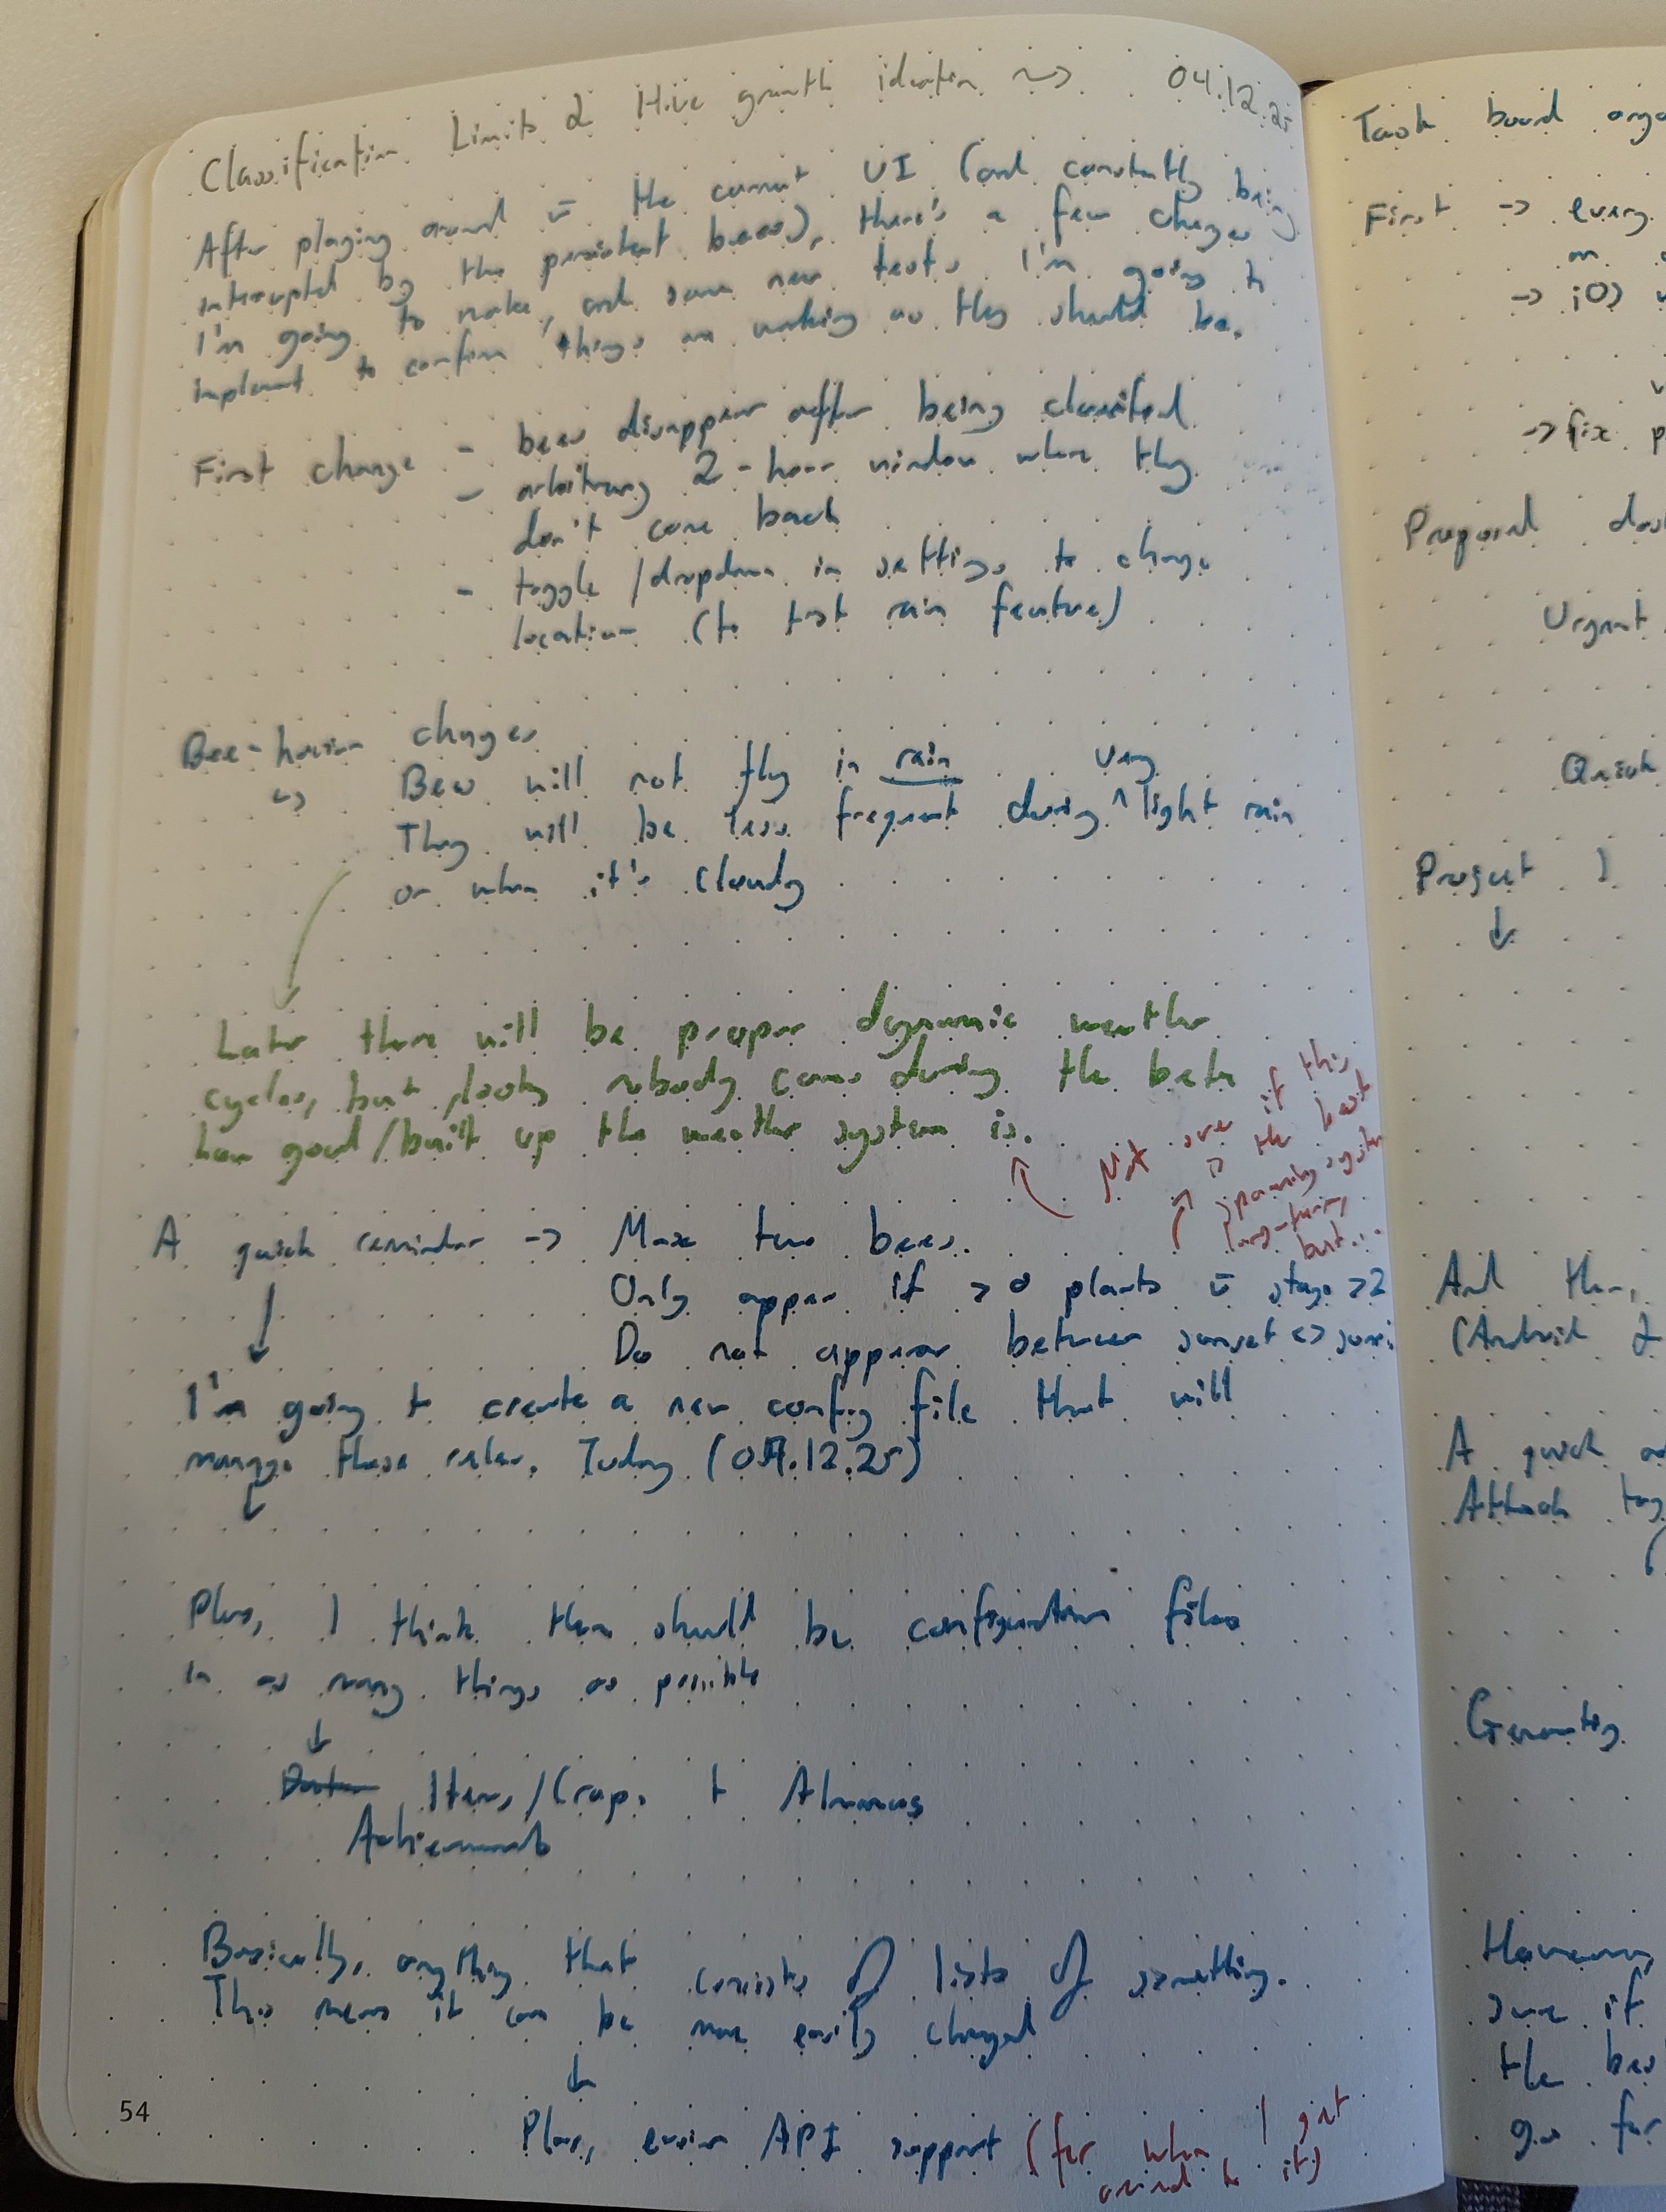 Classification Limits & Hive growth ideation ~> 04.12.25
After playing around w̄ the current UI (and constantly being
interrupted by the persistent bees), there's a few changes
I'm going to make, and some new tests I'm going to
implement to confirm things are working as they should be.
First change - bees disappear after being classified
- arbitrary 2-hour window where they
don't come back
- toggle/dropdown in settings to change
location (to test rain feature)
Bee-haviour changes
↳ Bees will not fly in rain
They will be less frequent during ^very light rain
or when it's cloudy
Later there will be proper dynamic weather
cycles, but nobody cares during the beta
how good/built up the weather system is.
Not sure if this
is the best
spawning system
long-term,
but...
A quick reminder -> Max two bees.
Only appear if >0 plants w̄ stage >2
Do not appear between sunset <>
↓
I'm going to create a new config file that will
manage these rules. Today (04.12.25)
↓
Plus, I think there should be configuration files
in as many things as possible
↓
Items/Crops + Almanac
Achievements
Basically, anything that consists of lists of something.
This means it can be more easily changed
↓
Plus, easier API support (for when I get
around to it)
54
Task board
First -> every
on
-> iOS
-> fix
Proposal
Urgent
Quick
Project 1
↓
And then,
(Android &
A quick
Attach
However,
sure if
the
go for